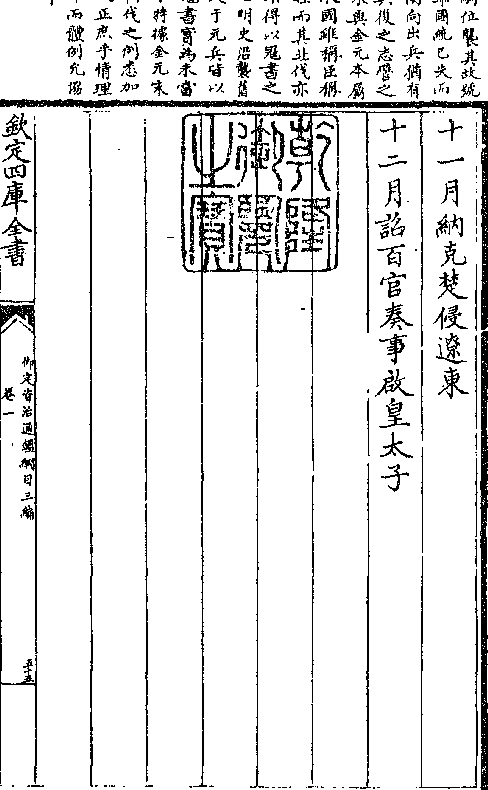 嗣位襲其故號
國統已失而
向出兵猶有
興復之志譬之
宋與金元本屬
國雖稱臣稱
而其北伐亦
得以冠書之
明史沿襲舊
于元兵皆以
書實為未當
特據金元宋
伐之例悉加
正庶乎情理
而體例允協
十一月納克楚侵遼東
十二月詔百官奏事啟皇太子
乾隆御覽之寶
欽定四庫全書
御定資治通鑑綱目三編
卷一
五十五